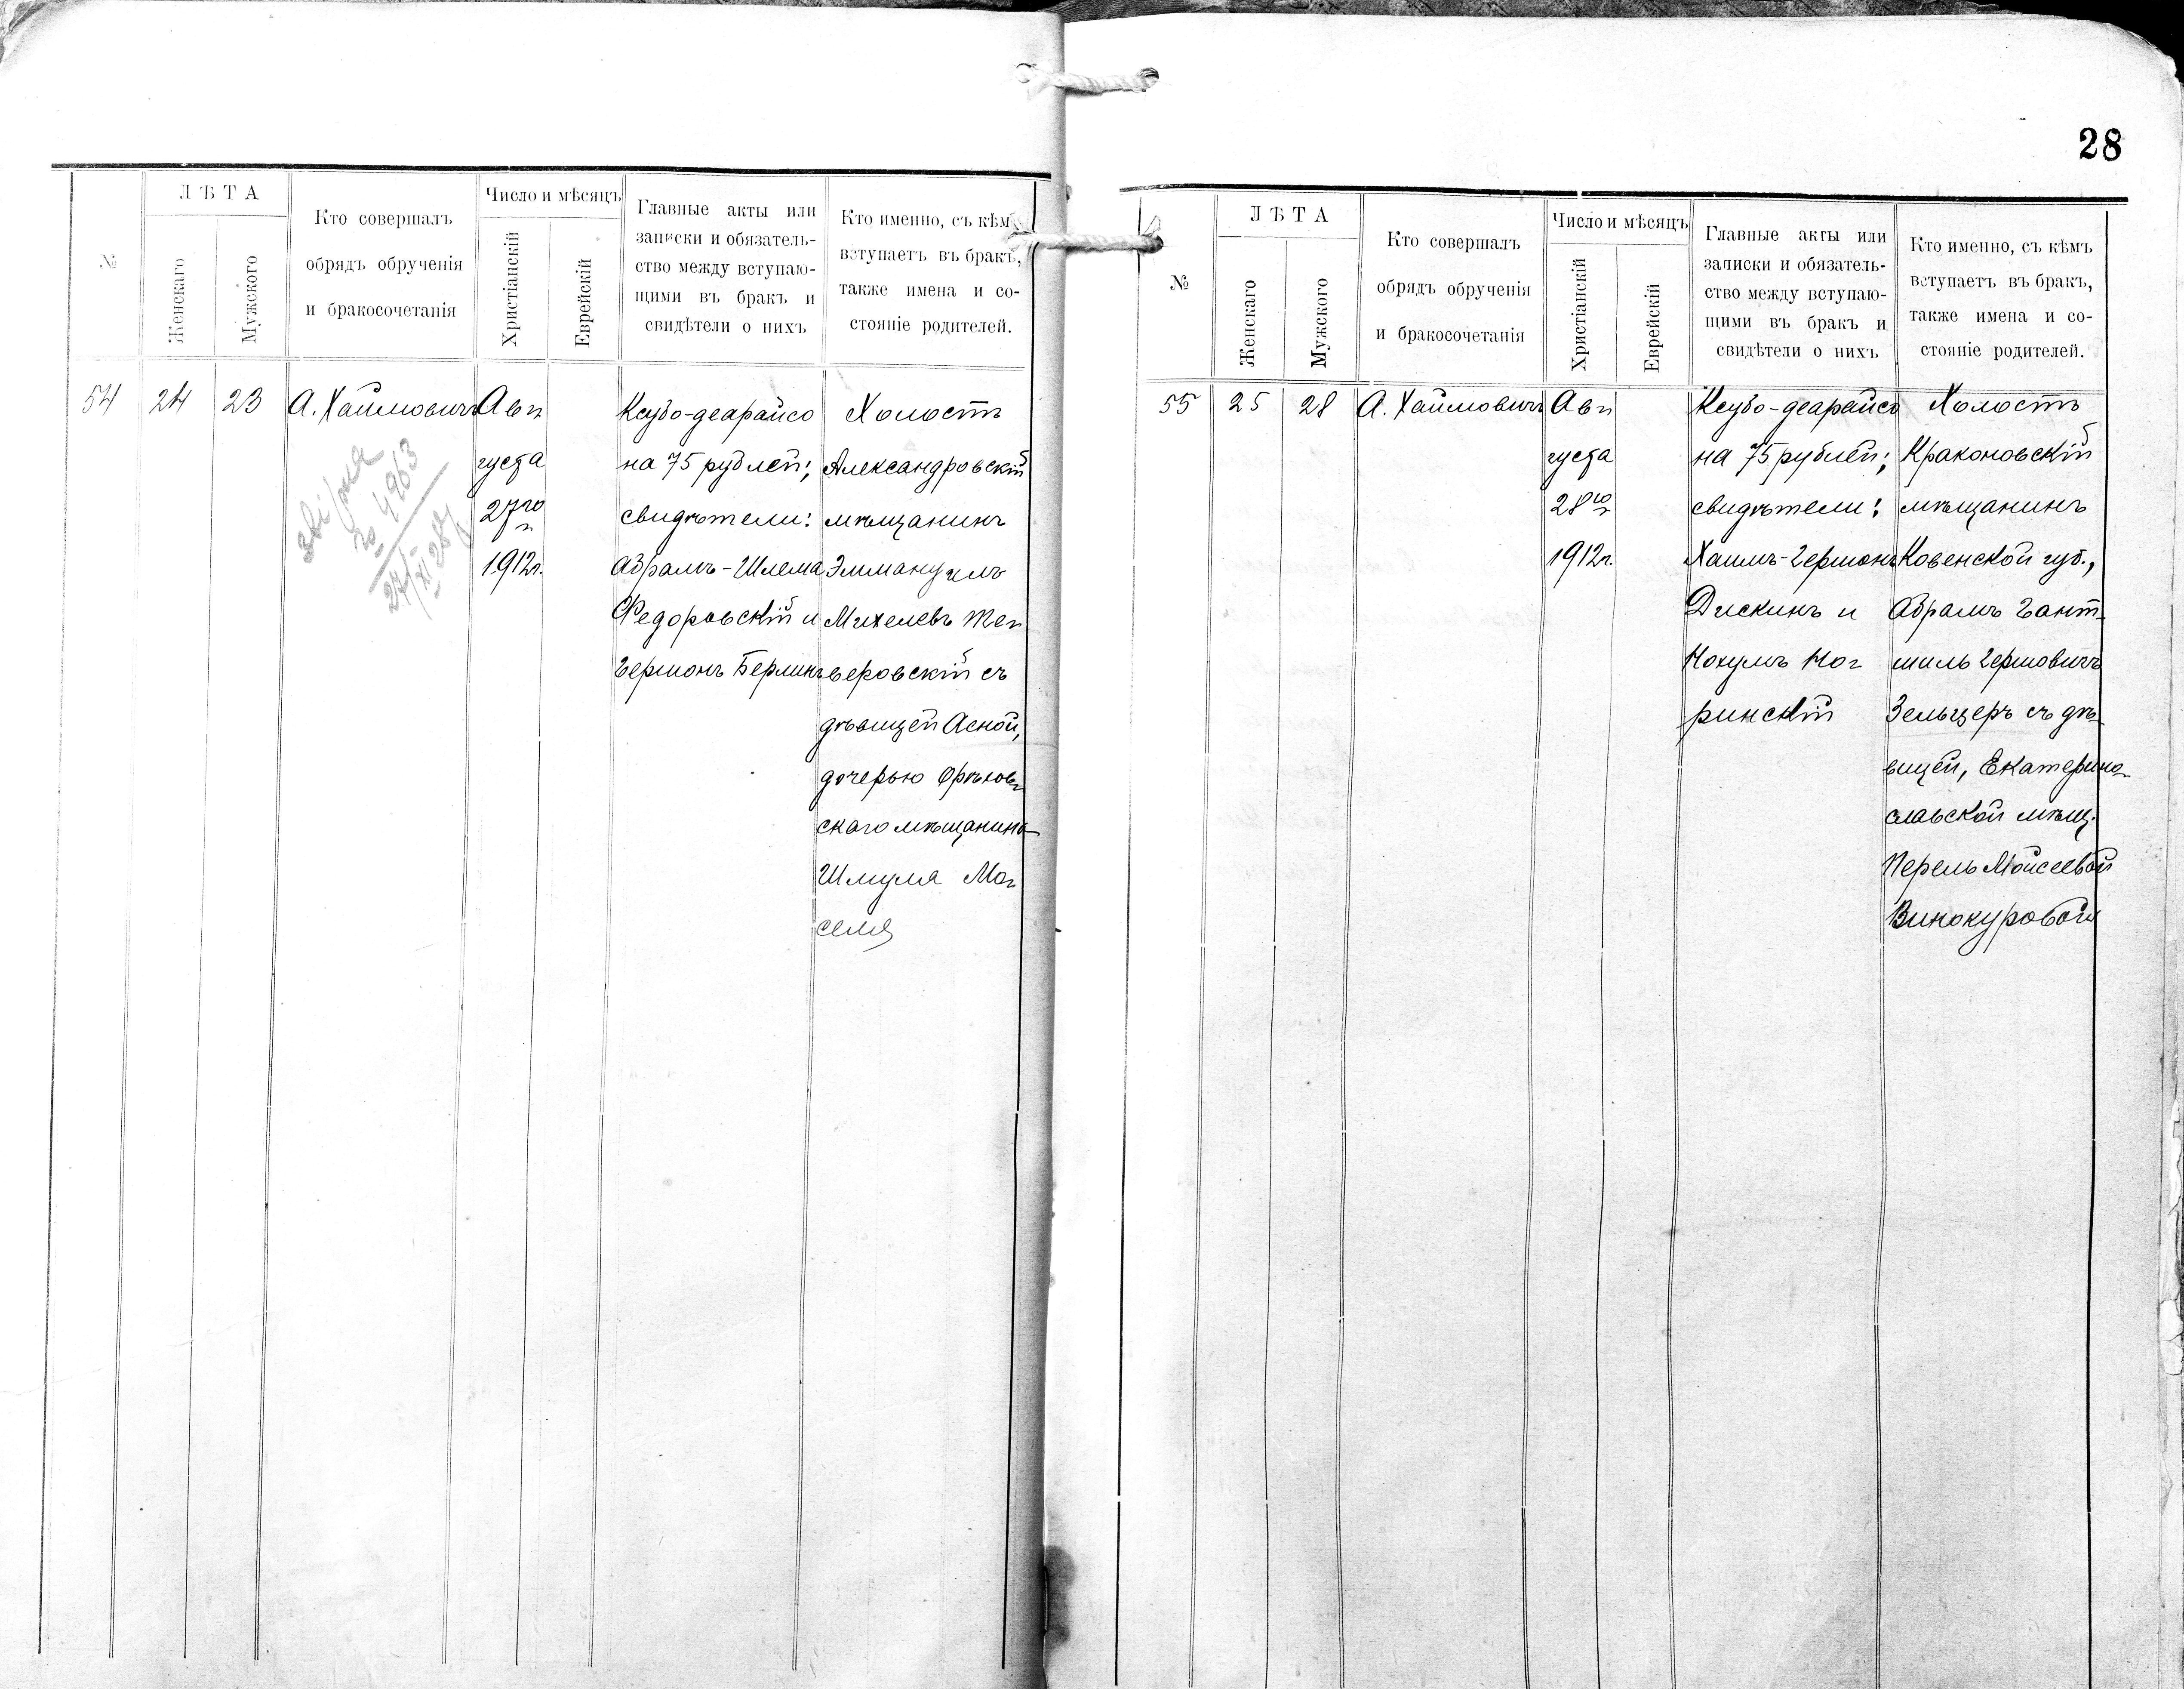 28
№
ЛѢТА
Женскаго
Мужского
Кто совершалъ
обрядъ обрученія
и бракосочетанія
Число и мѣсяцъ
Христіанскій
Еврейскій
Главные акты или
записки и обязатель-
ство между вступаю-
щими въ бракъ и
свидѣтели о нихъ
Кто именно, съ кѣмъ
вступаетъ въ бракъ,
также имена и со-
стояніе родителей.
54
24
23
А. Хаимовичъ
Ав-
густа
27го
1912г.
Ксубо-деарайсо
на 75 рублей;
свидѣтели:
Абрамъ-Шлема
Федоровскій и
Гершонъ Берлинъ
Холостъ
Александровскій
мѣщанинъ
Эммануилъ
Михелевъ
веровскій съ
дѣвицей Асной,
дочерью Орѣхов-
скаго мѣщанина
Шмуля Мо-
селя
4963
№
ЛѢТА
Женскаго
Мужского
Кто совершалъ
обрядъ обрученія
и бракосочетанія
Число и мѣсяцъ
Христіанскій
Еврейскій
Главные акты или
записки и обязатель-
ство между вступаю-
щими въ бракъ и
свидѣтели о нихъ
Кто именно, съ кѣмъ
вступаетъ въ бракъ,
также имена и со-
стояніе родителей.
55
25
28
А. Хаимовичъ
Ав-
густа
28го
1912г.
Ксубо-деарайсо
на 75 рублей;
свидѣтели:
Хаимъ-Гершонъ
Дискинъ и
Нохумъ Но-
ринскій
Холостъ
Краконовскій
мѣщанинъ
Ковенской губ.,
Абрамъ Гант-
шиль Гершовичъ
Зельцеръ съ дѣ-
вицей, Екатерино-
славской мѣщ.
Перель Мойсеевой
Винокуровой